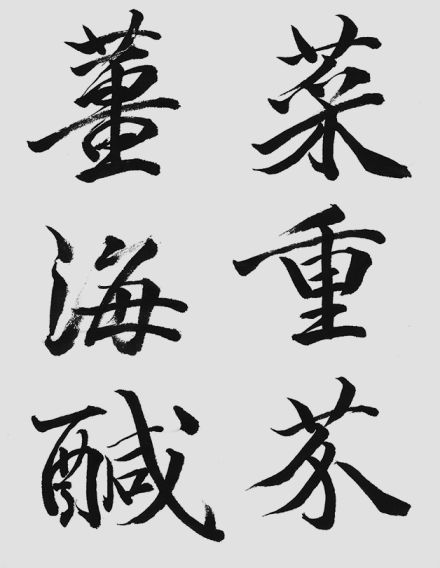 菜重芥
薑海醎